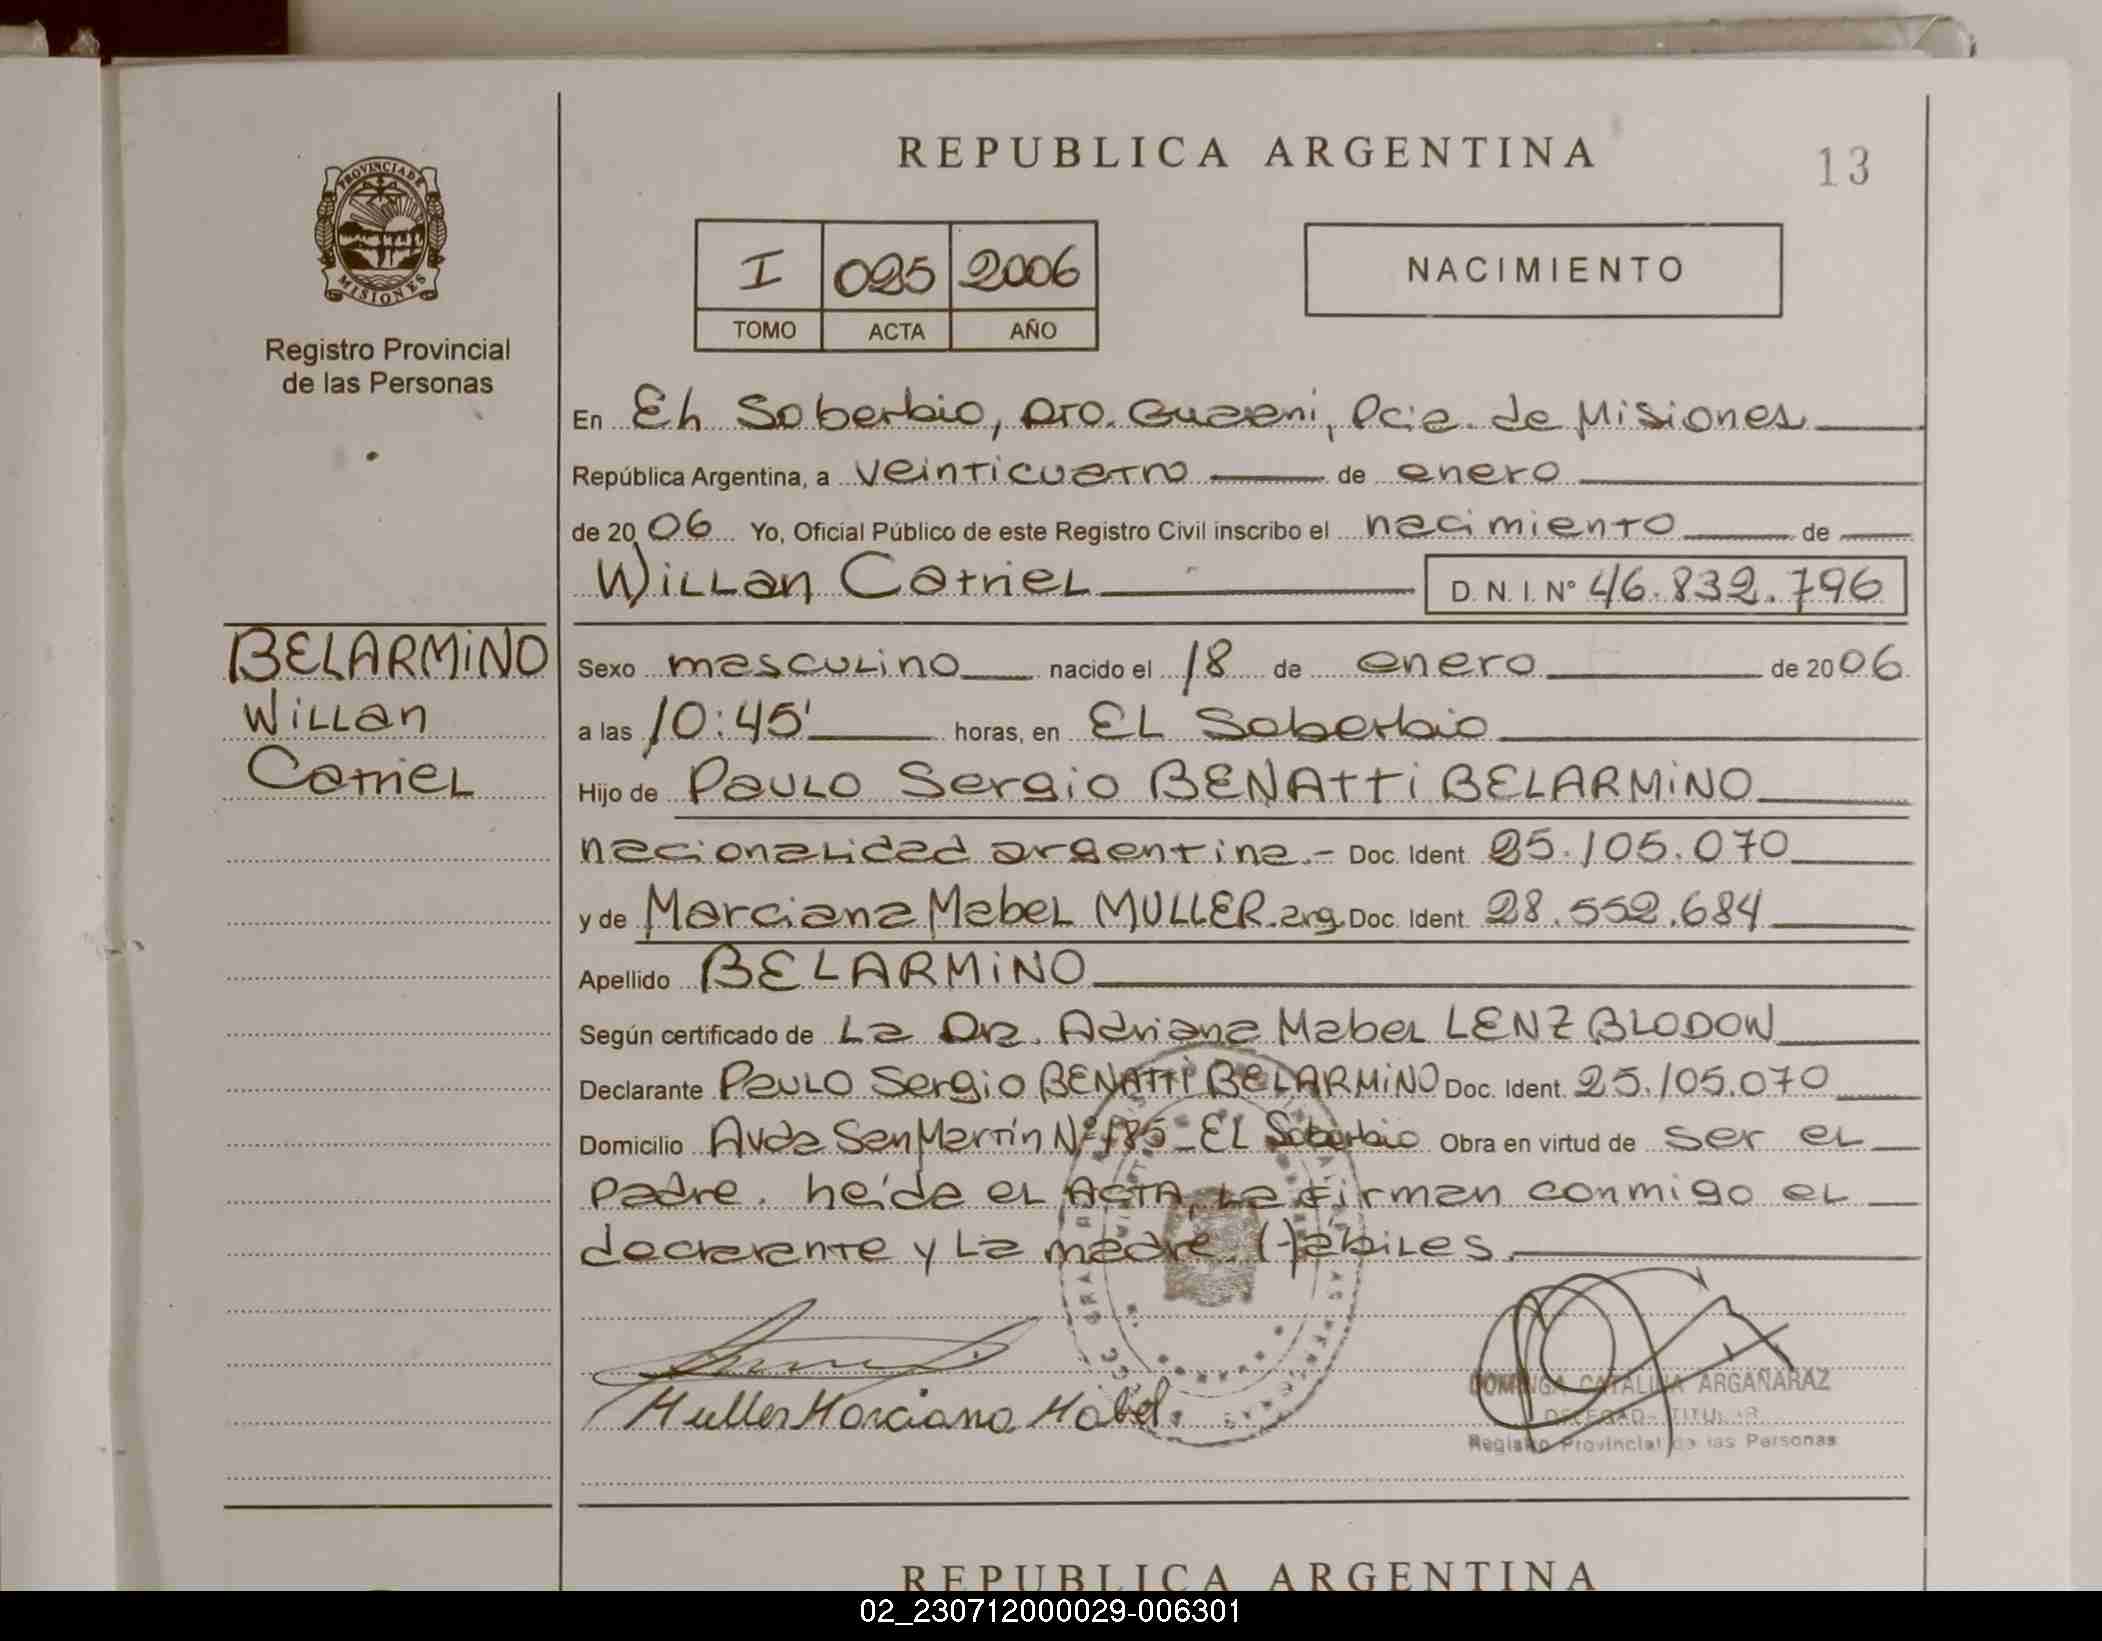 REPUBLICA ARGENTINA
13
PROVINCIA DE
MISIONES
Registro Provincial
de las Personas
I 025 2006
TOMO ACTA AÑO
NACIMIENTO
En Eh Soberbio, Dto. Guarani, Pcia. de Misiones
República Argentina, a veinticuatro de enero
de 2006 Yo, Oficial Público de este Registro Civil inscribo el nacimiento de
Willan Catriel D. N. I. Nº 46.832.796
BELARMINO
Willan
Catriel
Sexo masculino nacido el 18 de enero de 2006
a las 10:45' horas, en El Soberbio
Hijo de Paulo Sergio BENATTI BELARMINO
nacionalidad argentina.- Doc. Ident. 25.105.070
y de Marciana Mabel MULLER. arg. Doc. Ident. 28.552.684
Apellido BELARMINO
Según certificado de La Dra. Adriana Mabel LENZ BLODOW
Declarante Paulo Sergio BENATTI BELARMINO Doc. Ident. 25.105.070
Domicilio Avda San Martín Nº 185 - El Soberbio Obra en virtud de ser el
Padre. heída el ACTA, la firman conmigo el
declarante y la madre. Hábiles.
Muller Marciana Mabel
DOMINGA CATALINA ARGAÑARAZ
DELEGADA TITULAR
Registro Provincial de las Personas
REPUBLICA ARGENTINA
02_230712000029-006301